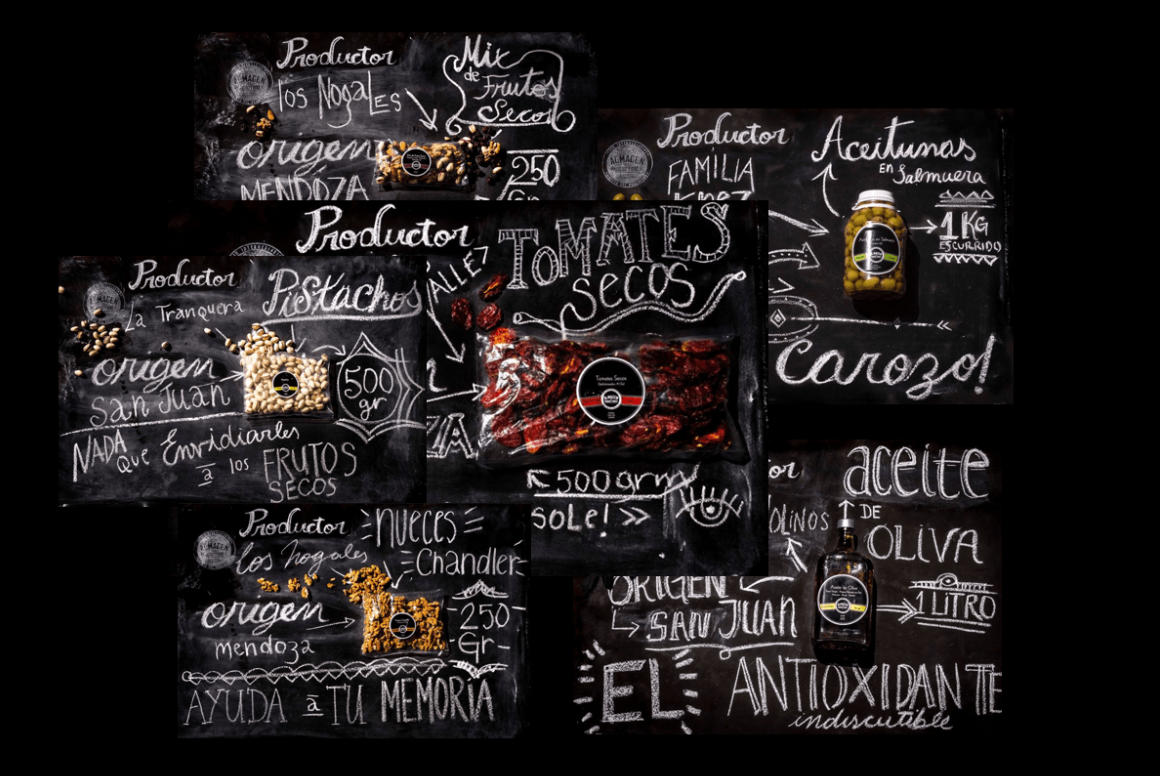 Productor
los Nogales
Mix
de Frutos
Secos
origen
MENDOZA
250
Gr
Productor
FAMILIA
Aceitunas
EN Salmuera
1KG
ESCURRIDO
Carozo!
Productor
VALLE
TOMATES
Secos
Tomates Secos
500grm
SOLE! >>
Productor
La Tranquera
Pistachos
origen
San Juan
500
gr
NADA
Que Envidiarles
a los FRUTOS
SECOS
Productor
los nogales
NUECES
Chandler
origen
mendoza
250
Gr-
AYUDA a TU MEMORIA
or
aceite
DE
OLIVA
OLINOS
ORIGEN
SAN JUAN
1 LITRO
EL ANTIOXIDANTE
indiscutible